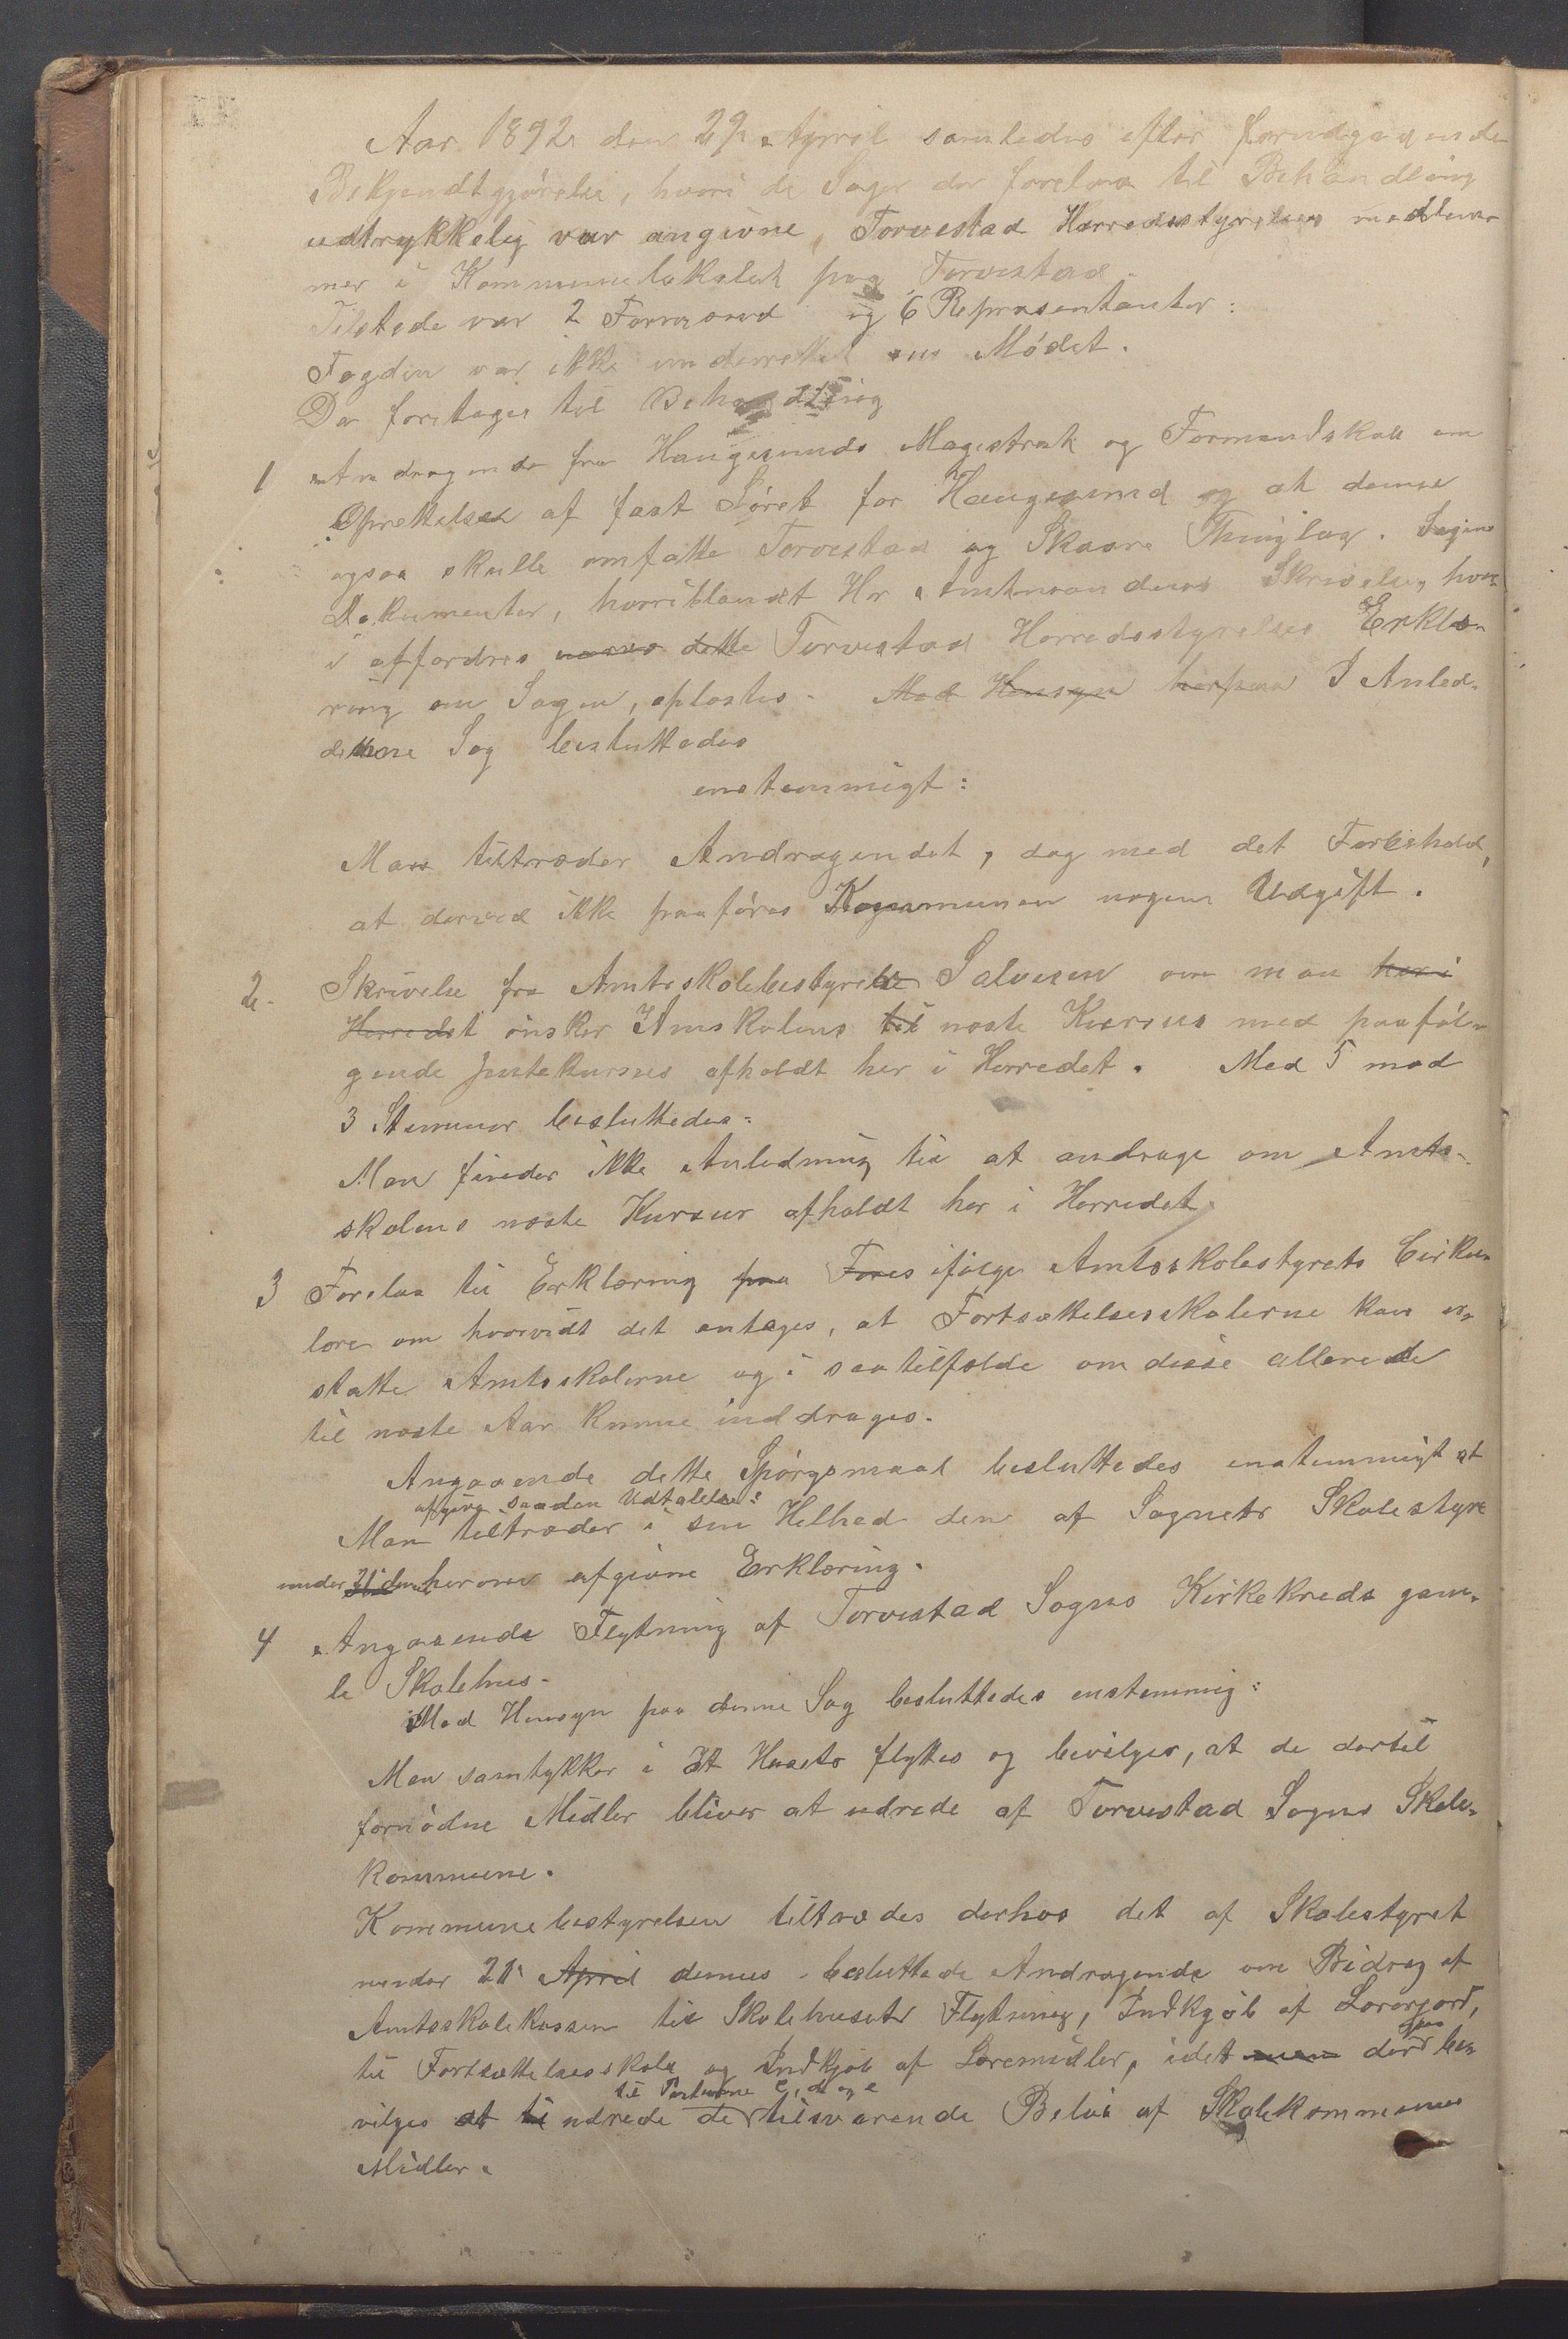 Aar 1892 den 29 April samledes efter forudgaaende
Bekjendtgjørelse, hvori de Sager der forelaa til Behandling
udtrykkelig var angivne, Torvestad Herredsstyrelses medlem-
mer i Kommunelokalet paa Torvestad.
Tilstede var 2 Formænd og 6 Repræsentanter:
Fogden var ikke underrettet om Mødet.
Da foretages til Behandling
1 Andragende fra Haugesunds Magistrat og Formandskab om
Oprettelse af fast Lóret for Haugesund og at denne
ogsaa skulle omfatte Torvestad og Skaare Thinglag. Sagens
Dokumenter, hvoriblandt Hr Amtmandens Skrivelse, hvor-
i affordres dette Torvestad Herredsstyrelses Erklæ-
ring om Sagen, oplæstes. Med Hensyn herpaa I Anled.
denne Sag besluttedes
enstemmigt:
Man tiltræder Andragendet, dog med det Forbehold,
at derved ikke paaføres Kommunen nogen Udgift.
2. Skrivelse fra Amtsskolebestyrer Salvesen om man her i
Herredet ønsker Amskolens til næste Kursus med paaføl-
gende Jentekursus afholdt her i Herredet. Med 5 mod
3 Stemmer besluttedes:
Man finder ikke Anledning til at andrage om Amts-
skolens næste Kursur afholdt her i Herredet.
3 Forelaa til Erklæring fra Fores ifølge Amtsskolestyrets Cirku-
lære om hvorvidt det antages, at Fortsættelsesskolerne kan er-
statte Amtsskolerne og i saa tilfælde om disse allerede
til næste Aar kunne inddrages.
Angaaende dette Spørgsmaal besluttedes enstemmigt at
afgive saadan Udtalelse:
Man tiltræder i sin Helhed den af Sognets Skolestyre
under 21 den herover afgivne Erklæring.
4 Angaaende Flytning af Torvestad Sogns Kirkekreds gam-
le Skolehus.
Med Hensyn paa denne Sag besluttedes enstemmig:
Man samtykker i At Husets flyttes og bevilges, at de dertil
fornødne Midler bliver at udrede af Torvestad Sogns Skole-
kommune.
Kommunebestyrelsen tiltrædes derhos det af Skolestyret
under 21 April dennes besluttede Andragende om Bidrag af
Amtsskolekassen til Skolehusets Flytning, Indkjøb af Lærerjord,
til Fortsættelsesskole og Indkjøb af Læremidler, idet man der be-
til Posterne c, d og e
vilges at ti udrede de tilsvarende Beløb af Skolekommunens
Midler.